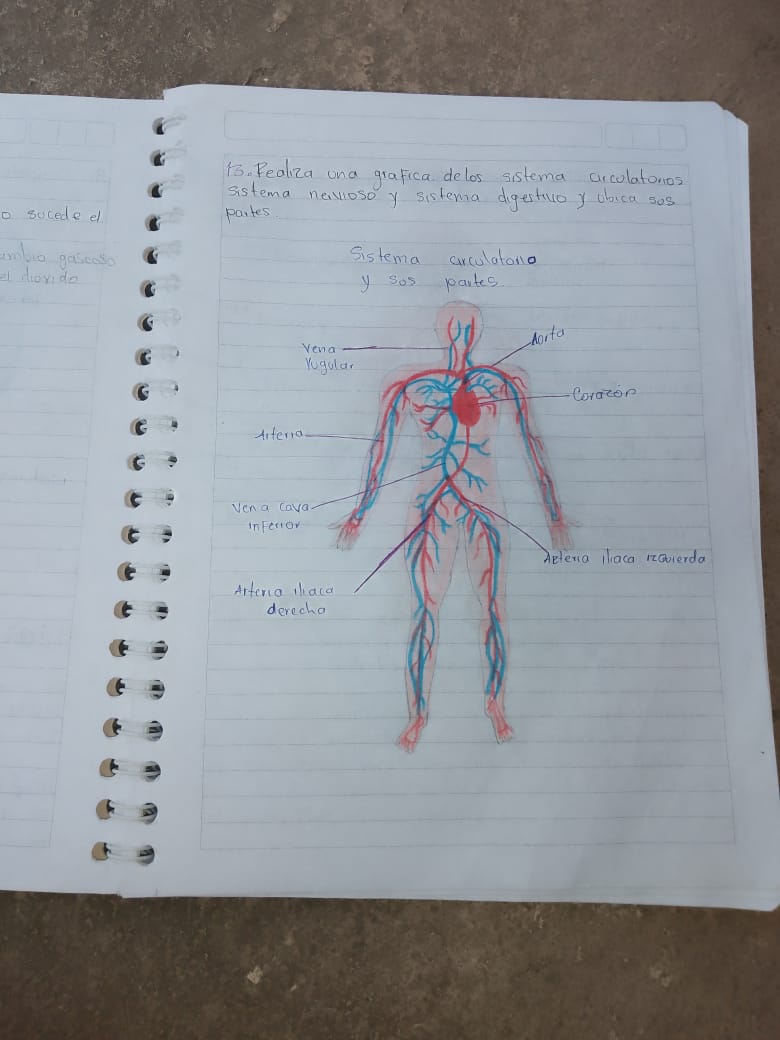 o sucede el
ambio gaseoso
el dioxido
13. Realiza una grafica de los sistema circulatorios
sistema nervioso y sistema digestivo y ubica sus
partes.
Sistema circulatorio
y sus partes.
Vena
Yugular
Aorta
Corazón
Arteria
Vena cava
inferior
Arteria iliaca izquierda
Arteria iliaca
derecha